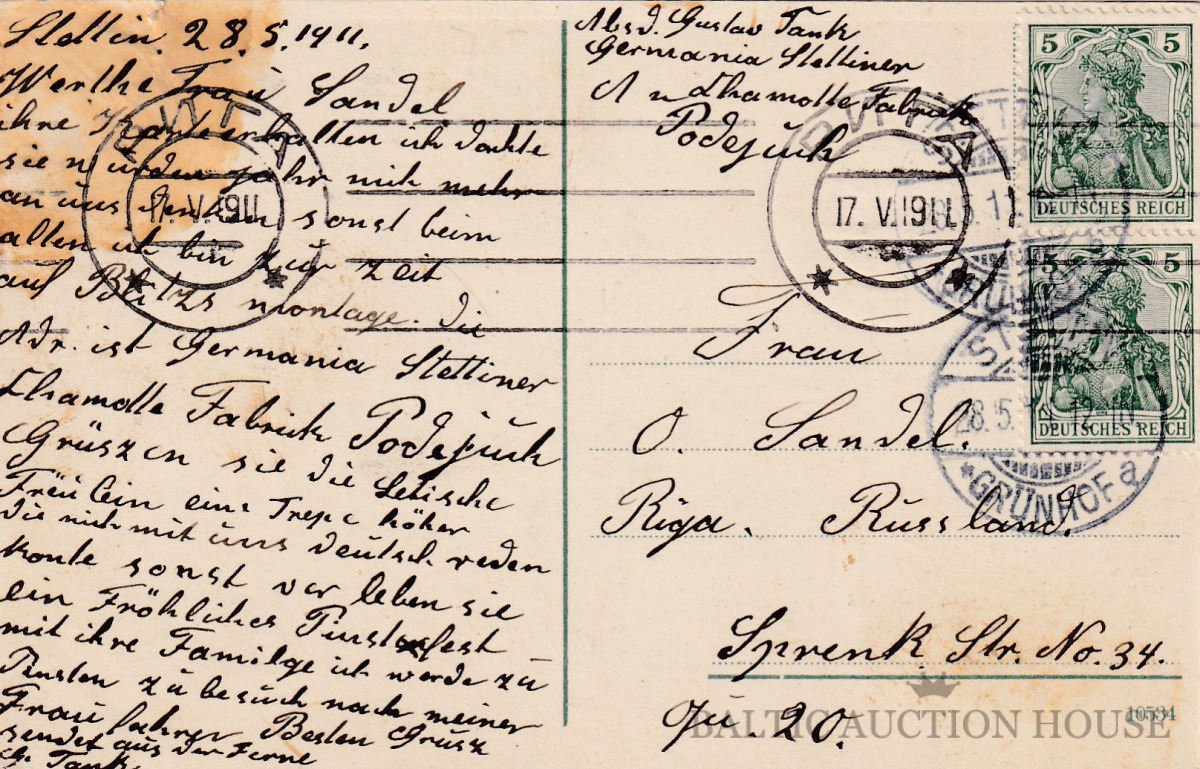 Stettin. 28.5.1911.
Werthe Frau Sandel
ihre Karte erhalten ich dachte
sie würden gahr nich mehr
an uns denken sonst beim
alten ich bin zur Zeit
auf montage. die
Adr. ist Germania Stettiner
Chamotte Fabrick Podejuch
Grüszen sie die Letische
Freülein eine Trepe höher
die nich mit üns deütsch reden
konte sonst ver leben sie
ein Fröhliches Pinstenfest
mit ihre Familge ich werde zu
Pinsten zu besuch nach meiner
Frau fahren Besten Grüsz
sendet aus der Ferne
G. Tank
Absd. Gustav Tank
Germania Stettiner
Chamotte Fabrick
Podejuch
5 5
DEUTSCHES REICH
5 5
DEUTSCHES REICH
17. V. 1911
17. V. 1911
STETTIN
28.5.11. 12-1N
*GRÜNHOF a
Frau
O. Sandel.
Riga. Russland.
Sprenk Str. No. 34.
Qu. 20.
10534
BALTIC AUCTION HOUSE